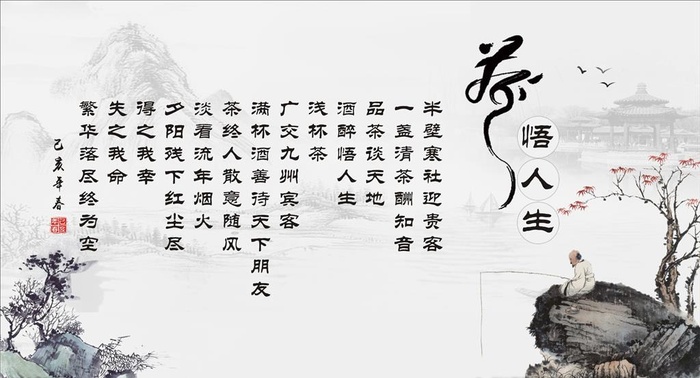 茶
悟人生
半壁寒社迎贵客
一盏清茶酬知音
品茶谈天地
酒醉悟人生
浅杯茶
广交九州宾客
满杯酒善待天下朋友
茶终人散意随风
淡看流年烟火
夕阳残下红尘尽
得之我幸
失之我命
繁华落尽终为空
己亥年春